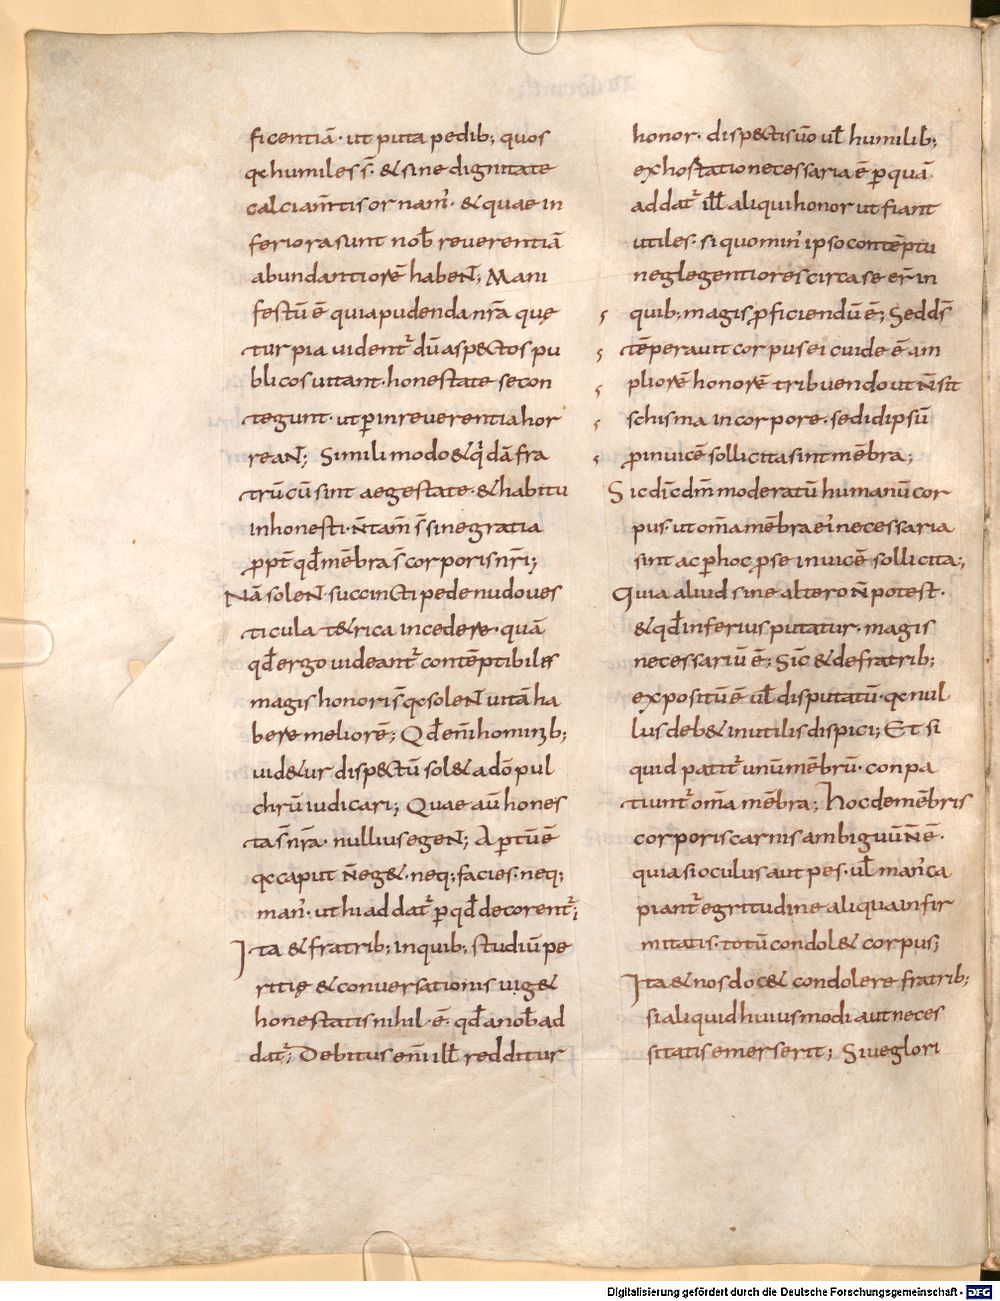 ficentiā· ut puta pedib; quos
qꝫ humiles s̄· & sine dignitate
calciam̄tis ornant᷒· & quae in
feriora sunt nob̄ reverentiā
abundantiorē habeɴ̄; Mani
festū ē quia pudenda nr̄a quę
turpia vident᷒ dū aspectos pu
blicos vitant· honestate se con
tegunt· ut ꝑ inreverentia hor
reaɴ̄; Simili modo & q'dā fra
trū cū sint aegestate· & habitu
inhonesti· n̄ tam̄ s̄ sine gratia
ꝓpt̄ qd̄ mēbra s̄ corporis nr̄i;
Nā soleɴ̄ succincti pede nudo ves
ticula tetrica incedere· quā
qd̄ ergo videant᷒ contēptibiles
magis honori s̄ qꝫ soleɴ̄ vitā ha
bere meliorē; Qd̄ enī hominib;
videtur dispectū solet a dō pul
chrū iudicari; Quae aū hones
ta s̄ nr̄a· nullius egeɴ̄; Apertū ē
qꝫ caput n̄ eg&· neq; facies· neq;
man᷒· ut hi addat᷒ ꝑ qd̄ decorent᷒;
Ita & fratrib; in quib; studiū pe
ritię & conversationis vig&
honestatis nihil· ē· qd̄ a nob̄ ad
dat᷒; Debitus enī ill̄ redditur
honor· dispectis v̄o vl̄ humilib;
exhostatio necessaria ē ꝑ quā
addat᷒ ill̄ aliqui honor ut fiant
utiles· si quo min᷒ ipso contēptu
neglegentiores circa se er̄ in
quib; magis ꝓficiendū ē; Sed d̄s
tēperavit corpus ei cui de ē am
pliorē honorē tribuendo ut n̄ sit
schisma in corpore· sed id ipsū
ꝓ invicē sollicita sint mēbra;
Sic dic̄ dm̄ moderatū humanū cor
pus· ut om̄a mēbra ei᷒ necessaria
sint ac ꝑhoc ꝓ se invicē sollicita;
Quia aliud sine altero n̄ potest·
& qd̄ inferius putatur· magis
necessariū ē; Sic̄ & de fratrib;
expositū ē vl̄ disputatū· qꝫ nul
lus deb& inutilis dispici; Et si
quid patit᷒ unū mēbrū· conpa
tiunt᷒ om̄a mēbra; Hoc de mēbris
corporis carnis ambiguū n̄ ē·
quia si oculus aut pes· vl̄ man᷒ ca
piant᷒ egritudine aliqua infir
mitatis· totū condol& corpus;
Ita & nos doc& condolere fratrib;
si aliquid huiusmodi aut neces
sitatis emerserit; Sive glori
Digitalisierung gefördert durch die Deutsche Forschungsgemeinschaft - DFG